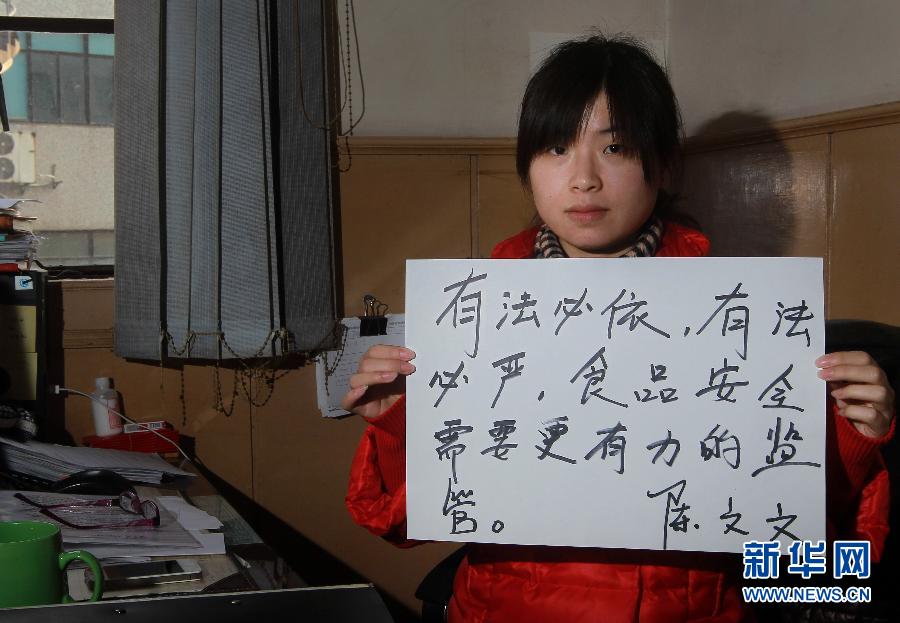 有法必依，有法
必严，食品安全
需要更有力的监
管。 陈文文
新华网
WWW.NEWS.CN